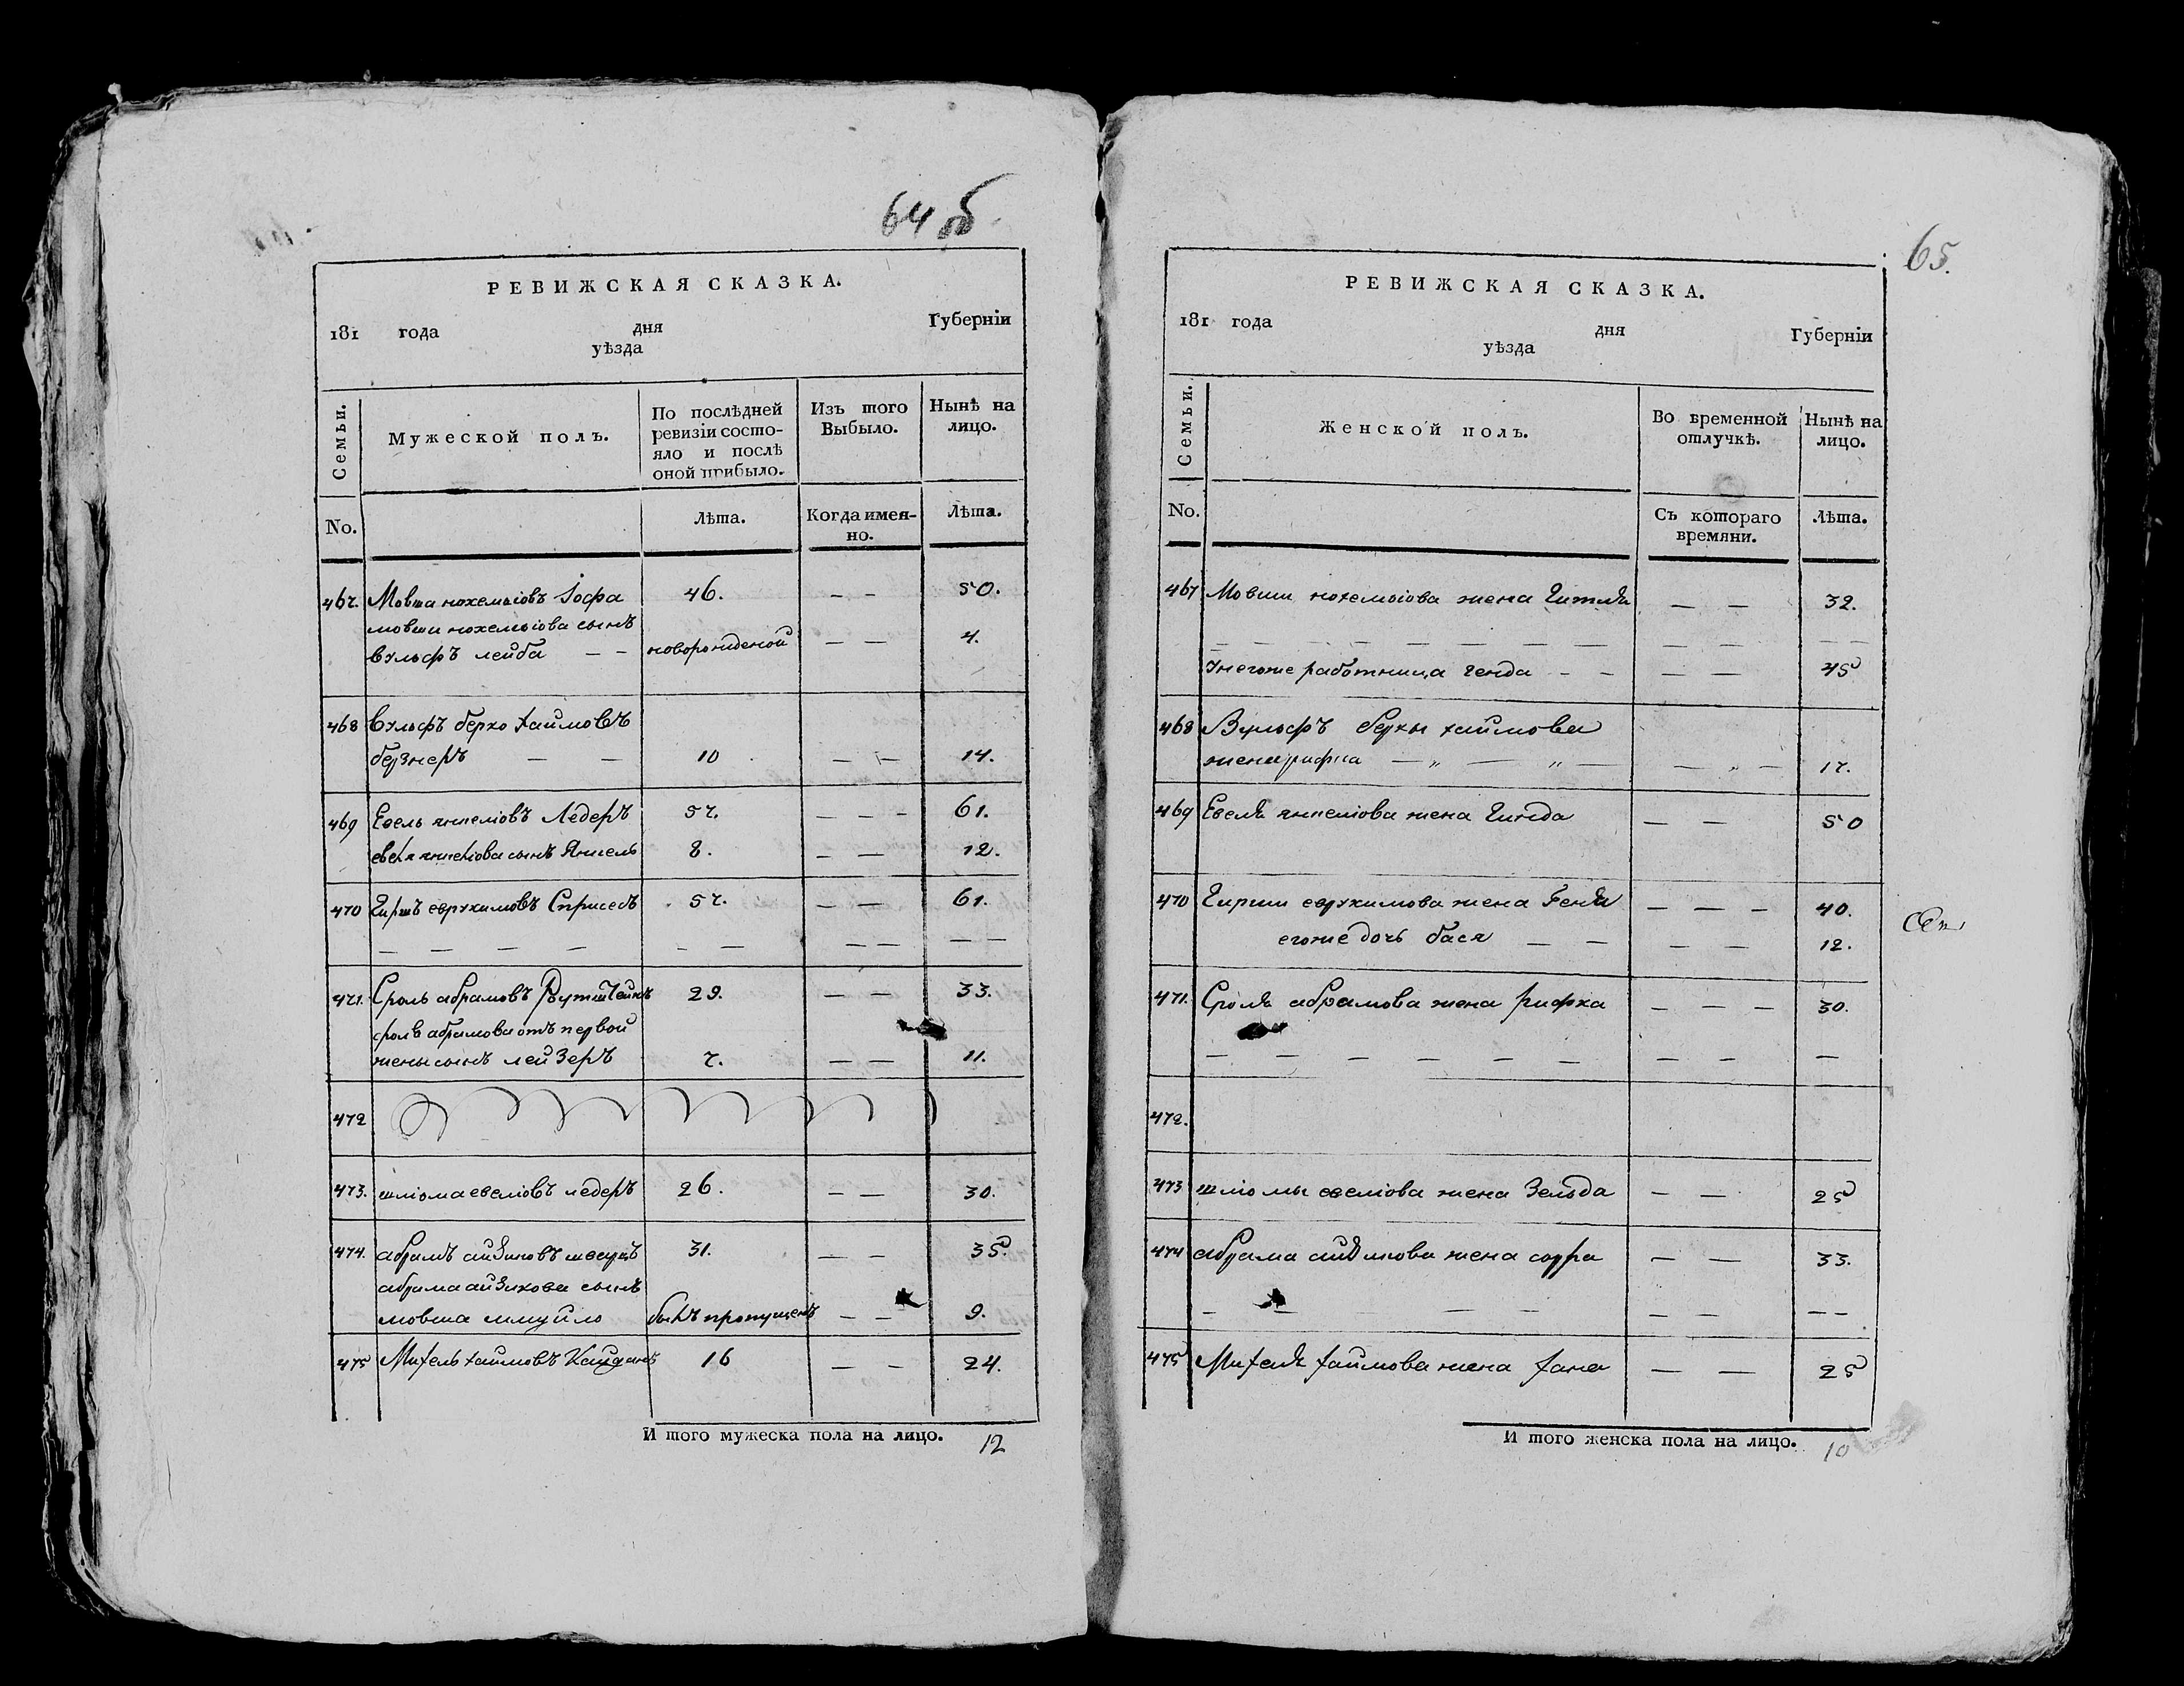 64 об
РЕВИЖСКАЯ СКАЗКА.
181 года дня Губерніи
уѣзда
Семьи.
Мужеской полъ.
По послѣдней ревизіи состо-
яло и послѣ оной прибыло.
Изъ того Выбыло.
Нынѣ на лицо.
No.
Лѣта.
Когда имен-
но.
Лѣта.
467. Мовша нохемьіовъ Іофа 46. — — 50.
мовши нохемьіова сынъ
вульфъ лейба — — новорожденой — — 4.
468 Вульфъ берко хаимовъ
— — 10 — — 14.
469 Евель янкеліовъ Ледеръ 57. — — - 61.
евеля янкеліова сынъ Янкель 8. — — 12.
470 Гиршъ еврухимовъ 57. — — 61.
— — — — - — — — — —
471. Сроль абрамовъ 29. — — 33.
сроля абрамова отъ первой
жены сынъ лейзеръ 7. — — 11.
472
473. шліома евеліовъ ледеръ 26. — — 30.
474. абрамъ айзиковъ шварцъ 31. — — 35.
абрама айзикова сынъ
мовша шмуйло былъ пропущенъ — — 9.
475 Михель хаимовъ 16 — — 24.
И того мужеска пола на лицо. 12
65.
РЕВИЖСКАЯ СКАЗКА.
181 года дня Губерніи
уѣзда
Семьи.
Женской полъ.
Во временной отлучкѣ.
Нынѣ на лицо.
No.
Съ котораго времяни.
Лѣта.
467 Мовши нохемьіова жена Гитля — — 32.
— — — — — — — — — — —
У него же работница генда - - — — 45
468 Вульфъ берки хаимова
жена рифка — „ — „ — — „ — 17.
469 Евеля янкеліова жена Гинда — — 50
470 Гирши еврухимова жена Геня — — — 40.
его же дочь бася — — — — 12.
471. Сроля абрамова жена рифка — — — 30.
— — — — — — — — —
472.
473 шліомы евеліова жена Зельда — — 25
474 абрама айзикова жена сорра — — 33.
— — — — — — — —
475 Михеля хаимова жена хана — — 25
И того женска пола на лицо. 10